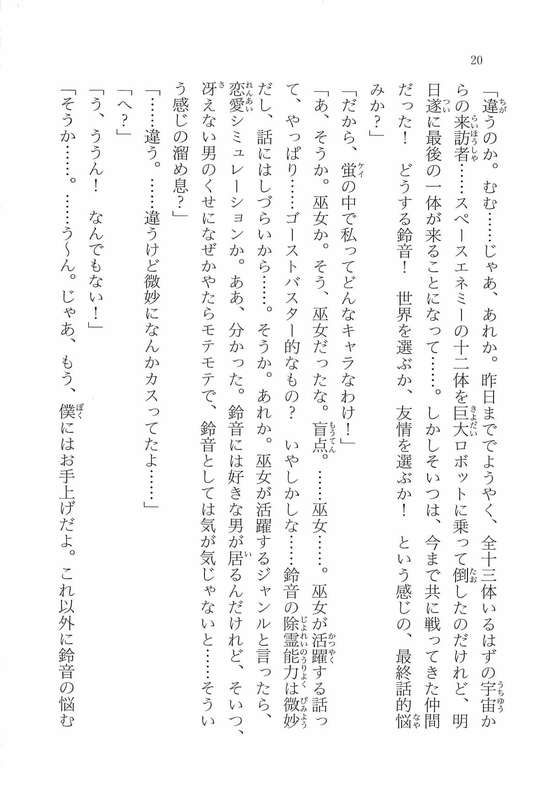 20
「違うのか。むむ……じゃあ、あれか。昨日まででようやく、全十三体いるはずの宇宙か
らの来訪者……スペースエネミーの十二体を巨大ロボットに乗って倒したのだけれど、明
日遂に最後の一体が来ることになって……。しかしそいつは、今まで共に戦ってきた仲間
だった！　どうする鈴音！　世界を選ぶか、友情を選ぶか！　という感じの、最終話的悩
みか？」
「だから、蛍の中で私ってどんなキャラなわけ！」
「あ、そうか。巫女か。そう、巫女だったな。盲点。……巫女……。巫女が活躍する話っ
て、やっぱり……ゴーストバスター的なもの？　いやしかしな……鈴音の除霊能力は微妙
だし、話にはしづらいから……。そうか。あれか。巫女が活躍するジャンルと言ったら、
恋愛シミュレーションか。ああ、分かった。鈴音には好きな男が居るんだけれど、そいつ、
冴えない男のくせになぜかやたらモテモテで、鈴音としては気が気じゃないと……そうい
う感じの溜め息？」
「……違う。……違うけど微妙になんかカスってたよ……」
「へ？」
「う、ううん！　なんでもない！」
「そうか……。……う～ん。じゃあ、もう、僕にはお手上げだよ。これ以外に鈴音の悩む